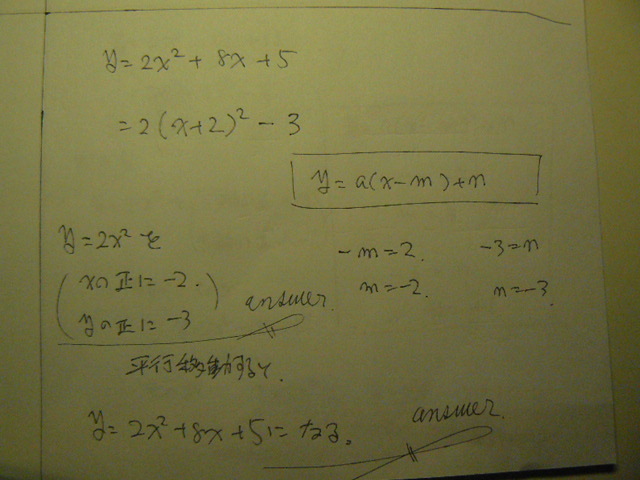 y=2x²+8x+5
=2(x+2)²-3
y=a(x-m)+n
y=2x²を
-m=2. -3=n
xの正に-2.
m=-2. n=-3.
answer.
yの正に-3
平行移動すると.
answer.
y=2x²+8x+5になる。